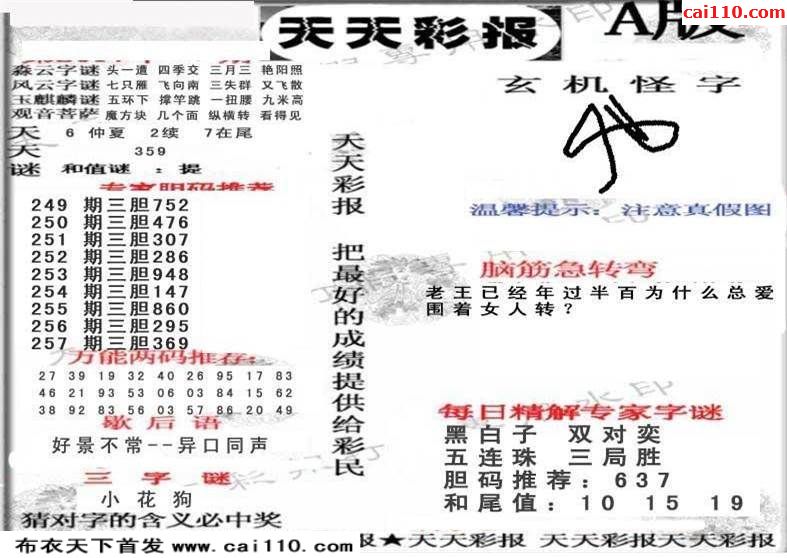 cai110.com
天天彩报
A版
淼云字谜 头一遭 四季交 三月三 艳阳照
风云字谜 七只雁 飞向南 三失群 又飞散
玉麒麟谜 五环下 撑竿跳 一扭腰 九米高
观音菩萨 魔方块 几个面 纵横转 看得见
天 6 仲夏 2续 7在尾
天 359
谜 和值谜 : 提
专家胆码推荐
249 期三胆752
250 期三胆476
251 期三胆307
252 期三胆286
253 期三胆948
254 期三胆147
255 期三胆860
256 期三胆295
257 期三胆369
万能两码推存:
27 39 19 32 40 26 95 17 83
46 21 93 53 06 03 84 15 62
38 92 83 56 03 57 86 20 49
歇后语
好景不常--异口同声
三字谜
小花狗
猜对字的含义必中奖
天天彩报 把最好的成绩提供给彩民
玄机怪字
温馨提示: 注意真假图
脑筋急转弯
老王已经年过半百为什么总爱
围着女人转?
每日精解专家字谜
黑白子 双对奕
五连珠 三局胜
胆码推荐: 637
和尾值: 10 15 19
布衣天下首发 www.cai110.com
报★天天彩报 天天彩报天天彩报